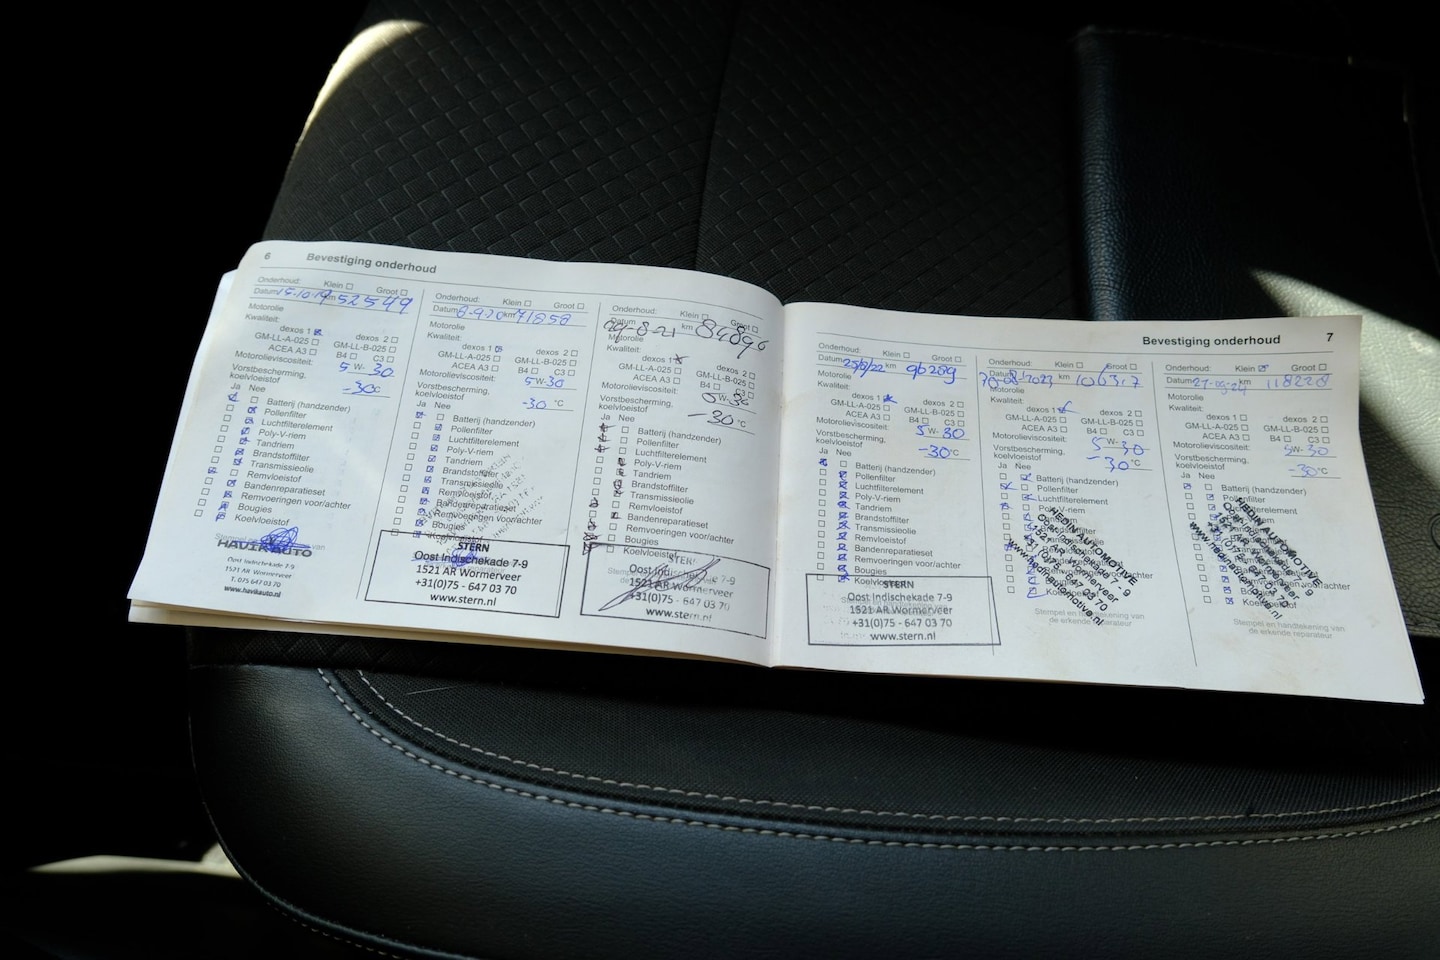 6 Bevestiging onderhoud
Onderhoud: Klein Groot
Datum 15-10-19 km 52549
Motorolie
Kwaliteit:
dexos 1 dexos 2
GM-LL-A-025 GM-LL-B-025
ACEA A3 B4 C3
Motorolieviscositeit: 5 W- 30
Vorstbescherming,
koelvloeistof -30c
Ja Nee
Batterij (handzender)
Pollenfilter
Luchtfilterelement
Poly-V-riem
Tandriem
Brandstoffilter
Transmissieolie
Remvloeistof
Bandenreparatieset
Remvoeringen voor/achter
Bougies
Koelvloeistof
HAVIK AUTO
Oost Indischekade 7-9
1521 AR Wormerveer
T. 075 647 03 70
www.havikauto.nl
Onderhoud: Klein Groot
Datum 8-9-20 km 71858
Motorolie
Kwaliteit:
dexos 1 dexos 2
GM-LL-A-025 GM-LL-B-025
ACEA A3 B4 C3
Motorolieviscositeit: 5 W-30
Vorstbescherming,
koelvloeistof -30 °C
Ja Nee
Batterij (handzender)
Pollenfilter
Luchtfilterelement
Poly-V-riem
Tandriem
Brandstoffilter
Transmissieolie
Remvloeistof
Bandenreparatieset
Remvoeringen voor/achter
Bougies
Koelvloeistof
STERN
Oost Indischekade 7-9
1521 AR Wormerveer
+31(0)75 - 647 03 70
www.stern.nl
Onderhoud: Klein Groot
Datum km
Motorolie
Kwaliteit:
dexos 1 dexos 2
GM-LL-A-025 GM-LL-B-025
ACEA A3 B4 C3
Motorolieviscositeit: W-30
Vorstbescherming,
koelvloeistof -30 °C
Ja Nee
Batterij (handzender)
Pollenfilter
Luchtfilterelement
Poly-V-riem
Tandriem
Brandstoffilter
Transmissieolie
Remvloeistof
Bandenreparatieset
Remvoeringen voor/achter
Bougies
Koelvloeistof
STERN
Oost Indischekade 7-9
1521 AR Wormerveer
+31(0)75 - 647 03 70
www.stern.nl
Bevestiging onderhoud 7
Onderhoud: Klein Groot
Datum 25/8/22 km 96289
Motorolie
Kwaliteit:
dexos 1 dexos 2
GM-LL-A-025 GM-LL-B-025
ACEA A3 B4 C3
Motorolieviscositeit: 5 W- 30
Vorstbescherming,
koelvloeistof -30 °C
Ja Nee
Batterij (handzender)
Pollenfilter
Luchtfilterelement
Poly-V-riem
Tandriem
Brandstoffilter
Transmissieolie
Remvloeistof
Bandenreparatieset
Remvoeringen voor/achter
Bougies
Koelvloeistof
STERN
Oost Indischekade 7-9
1521 AR Wormerveer
+31(0)75 - 647 03 70
www.stern.nl
Onderhoud: Klein Groot
km
Motorolie
Kwaliteit:
dexos 1 dexos 2
GM-LL-A-025 GM-LL-B-025
ACEA A3 B4 C3
Motorolieviscositeit: 5 W-30
Vorstbescherming,
koelvloeistof -30 °C
Ja Nee
Batterij (handzender)
Pollenfilter
Luchtfilterelement
HEDIN AUTOMOTIVE
Stempel en handtekening van
de erkende reparateur
Onderhoud: Klein Groot
Datum km
Motorolie
Kwaliteit:
dexos 1 dexos 2
GM-LL-A-025 GM-LL-B-025
ACEA A3 B4 C3
Motorolieviscositeit: 5W-30
Vorstbescherming,
koelvloeistof -30°C
Ja Nee
Batterij (handzender)
Pollenfilter
Luchtfilterelement
HEDIN AUTOMOTIVE
Koelvloeistof
Stempel en handtekening van
de erkende reparateur